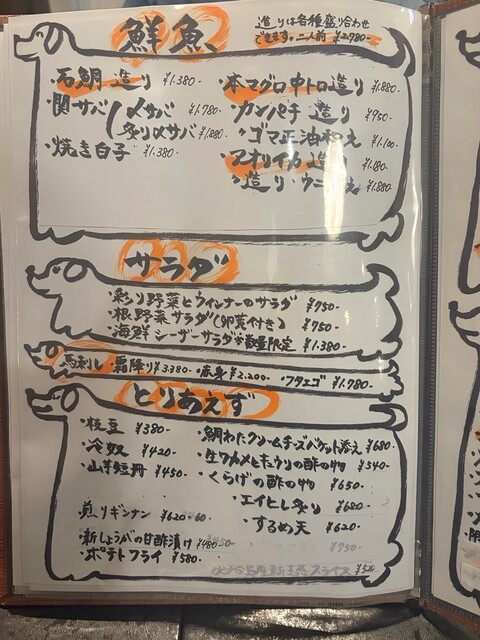 鮮魚
造りは各種盛り合わせ
できます。二人前 ¥2,780-
・石鯛 造り ¥1.380-
・関サバ 〆サバ ¥1.780-
炙り〆サバ ¥1.880-
・焼き白子 ¥1.380-
・本マグロ中トロ造り ¥1.880-
カンパチ 造り ¥950-
・ゴマ正油和え ¥1.100-
・アオリイカ 造り ¥1.180-
・造り・ウニ
¥1.880-
サラダ
・彩り野菜とウインナーのサラダ ¥750-
・根野菜サラダ(卵黄付き) ¥750-
・海鮮シーザーサラダ※数量限定 ¥1.380-
馬刺し・霜降り¥3.380-・赤身¥2.200-・フタエゴ ¥1.780-
とりあえず
・枝豆 ¥380-
・冷奴 ¥420-
・山芋短冊 ¥450-
煎りギンナン ¥620-
・新しょうがの甘酢漬け ¥480-
・ポテトフライ ¥580-
・鯛わたクリームチーズバケット添え ¥680-
・生ワカメとキュウリの酢の物 ¥540-
・くらげの酢の物 ¥650-
・エイヒレ炙り ¥680-
・するめ天 ¥620-
¥750-
スライス